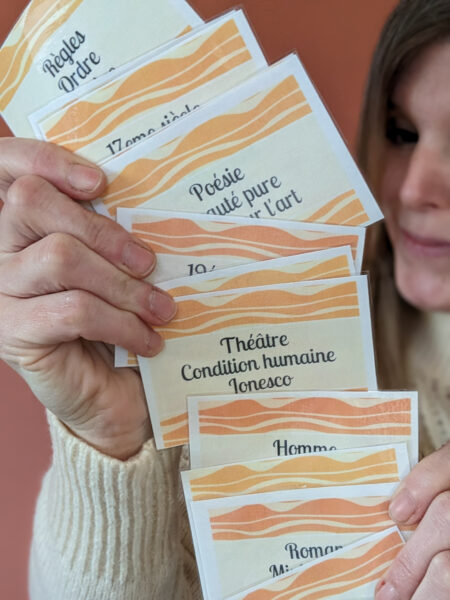 Règles
Ordre
17eme siècle
Poésie
l'art
Théâtre
Condition humaine
Ionesco
Homme
Roman